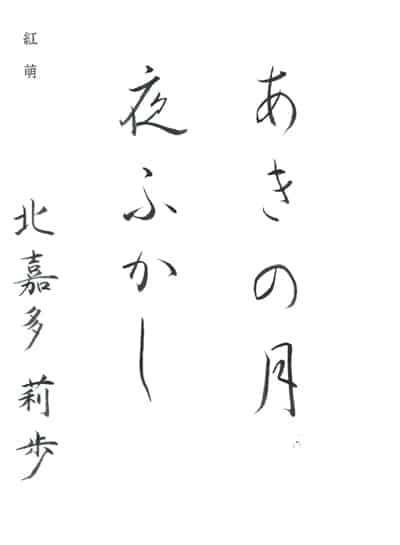 あきの月
夜ふかし
紅萌
北嘉多莉歩